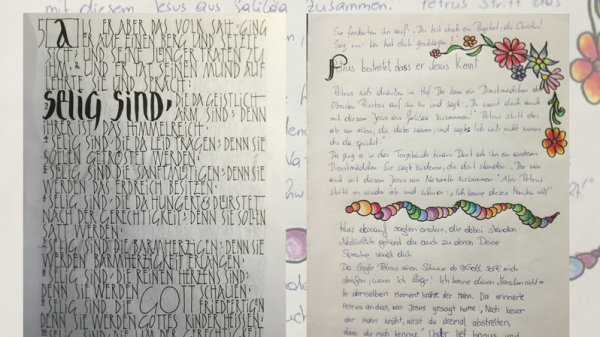 mit diesem Jesus aus Galiläa zusammen. Petrus stritt das
5 DA ER ABER DAS VOLK SAH, GING
ER AUF EINEN BERG UND SETZTE
SICH; UND SEINE JÜNGER TRATEN ZU
IHM, UND ER TAT SEINEN MUND AUF
LEHRTE SIE UND SPRACH:
Selig sind, DIE DA GEISTLICH
ARM SIND; DENN
IHRER IST DAS HIMMELREICH.
SELIG SIND, DIE DA LEID TRAGEN; DENN SIE
SOLLEN GETRÖSTET WERDEN.
SELIG SIND DIE
BESITZEN.
SELIG SIND, DIE DA HUNGERT & DÜRSTET
NACH DER GERECHTIGKEIT; DENN SIE SOLLEN
SATT WERDEN.
SELIG SIND DIE BARMHERZIGEN; DENN SIE
WERDEN BARMHERZIGKEIT ERLANGEN.
SELIG SIND, DIE REINEN HERZENS SIND;
DENN SIE WERDEN GOTT SCHAUEN.
SELIG SIND DIE FRIEDFERTIGEN
DENN SIE WERDEN GOTTES KINDER HEISSEN.
SELIG SIND, DIE UM DER GERECHTIGKEIT
Sie forderten ihn auf: „Du bist doch ein Prophet, du Christus!
Sag uns: Wer hat dich geschlagen?"
Petrus bestreitet, dass er Jesus kennt
Petrus saß draußen im Hof. Da kam ein Dienstmädchen des
Obersten Priesters auf ihn zu und sagte: „Du warst doch auch
mit diesem Jesus aus Galiläa zusammen!" Petrus stritt das
ab vor allen, die dabei waren, und sagte: Ich weiß nicht wovon
du da sprichst."
Da ging er in das Torgebäude hinein. Dort sah ihn ein anderes
Dienstmädchen. Sie sagte zu denen, die dort standen: „Der war
auch mit diesem Jesus aus Nazareth zusammen." Aber Petrus
stritt es wieder ab und schwor: „Ich kenne diesen Mann nicht!"
Kurz darauf sagten andere, die dabei standen:
„Natürlich gehörst du auch zu denen. Deine
Sprache verrät dich.
Da legte Petrus einen Schwur ab: „Gott soll mich
strafen, wenn ich lüge! Ich kenne diesen Menschen nicht."
In demselben Moment krähte der Hahn. Da erinnerte
Petrus an das, was Jesus gesagt hatte: „Noch bevor
der Hahn kräht, wirst du dreimal abstreiten,
dass du mich kennst." Und er lief hinaus und